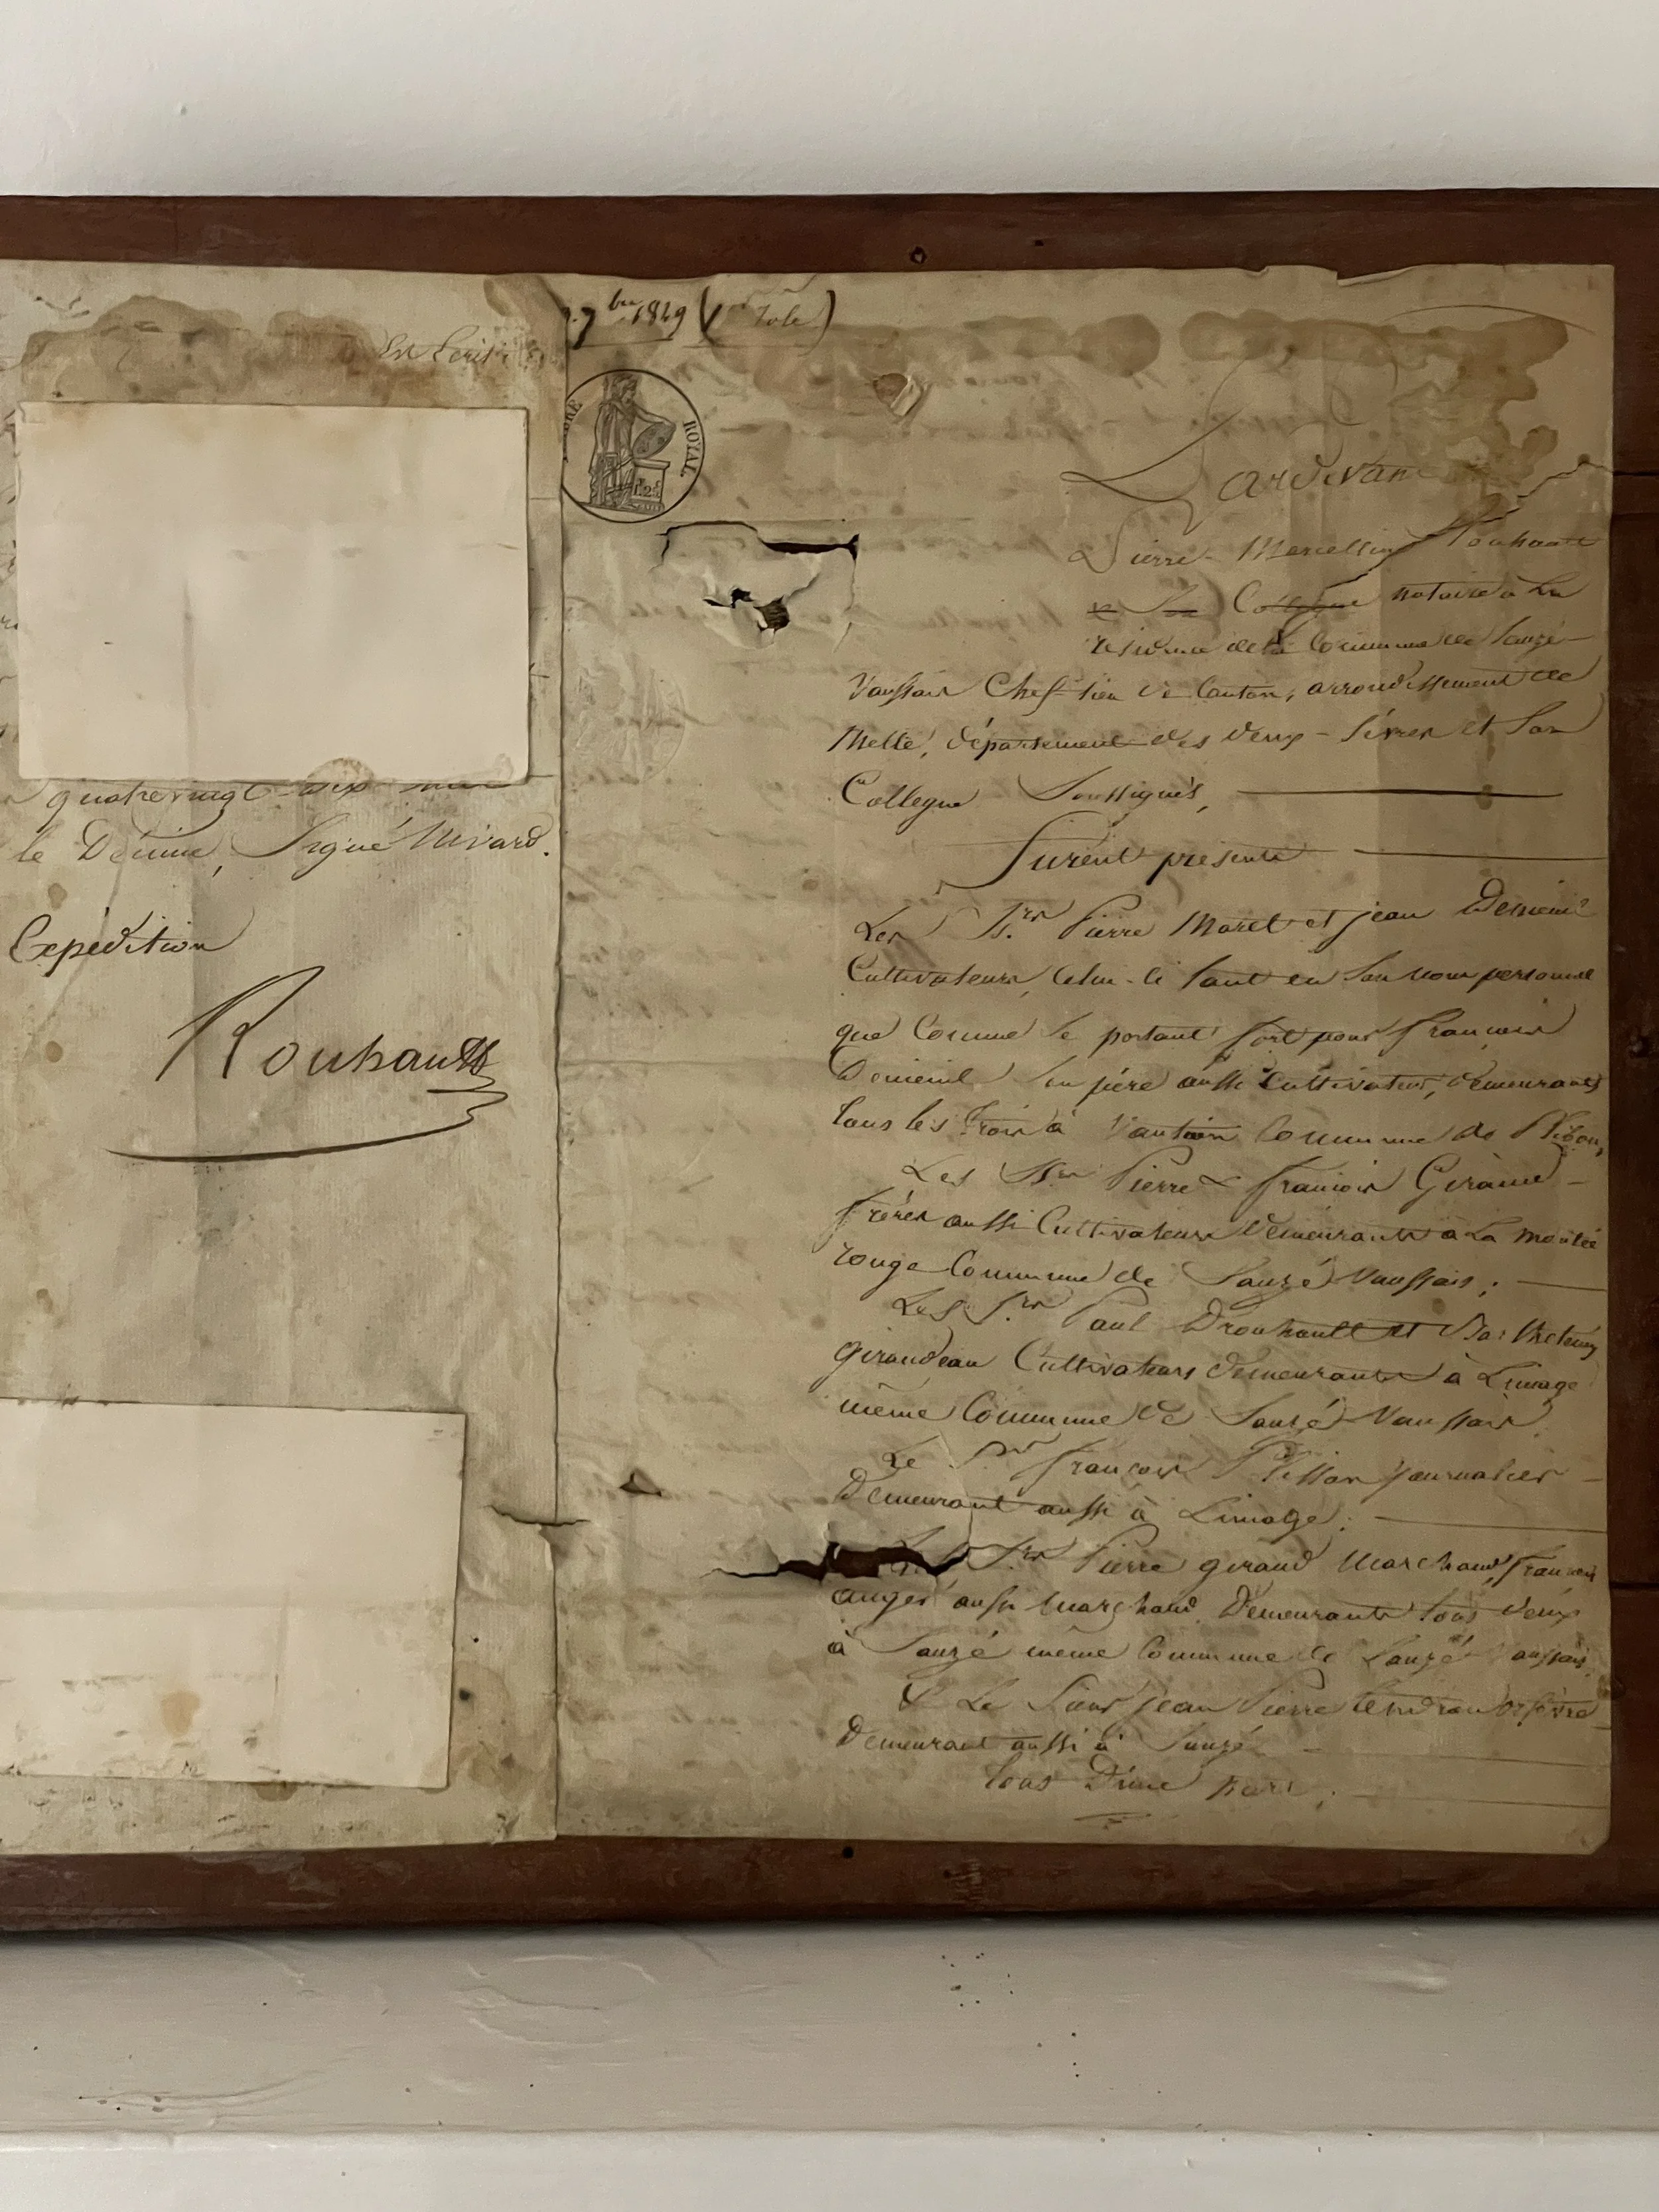 quatre vingt dix
le Décime, Signé Nivard.
Expédition
Rouhault
7bre 1849 ( Role)
ROYAL
Pardevant
Pierre Marcellin Rouhault
& Son Collègue notaire à La
résidence de la Commune de Sauzé-
Vaussais Chef-lieu de Canton, arrondissement de
Melle, département des deux-Sèvres et Son
Collegue Soussignés,
Furent présents
Les Srs Pierre Moret et jean
Cultivateurs, Celui-ci tant en Son nom personnel
que Comme Se portant fort pour françois
Son père aussi Cultivateur, demeurants
tous les trois à Commune de Plibou,
Les Srs Pierre & françois
frères aussi Cultivateurs Demeurants à La
rouge Commune de Sauzé Vaussais ;
Les Srs Paul Drouhault et Barthelemy
Giraudeau Cultivateurs demeurants à Limage
même Commune de Sauzé-Vaussais
Le Sr françois journalier
Demeurant aussi à Limage ;
Srs Pierre giraud Marchand, francois
auger aussi Marchand Demeurants tous deux
à Sauzé même Commune de Sauzé Vaussais
& Le Sieur jean Pierre orfèvre
Demeurant aussi à Sauzé
tous D'une part ;